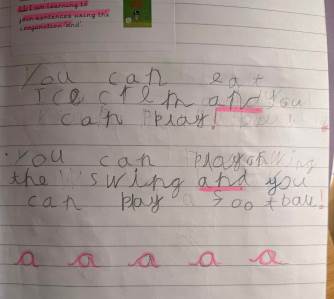 LO: I am learning to
join sentences using the
conjunction 'and'.
You can eat
Ice crem and you
can play!
You can play on
the swing and you
can play a foot ball!
a a a a a